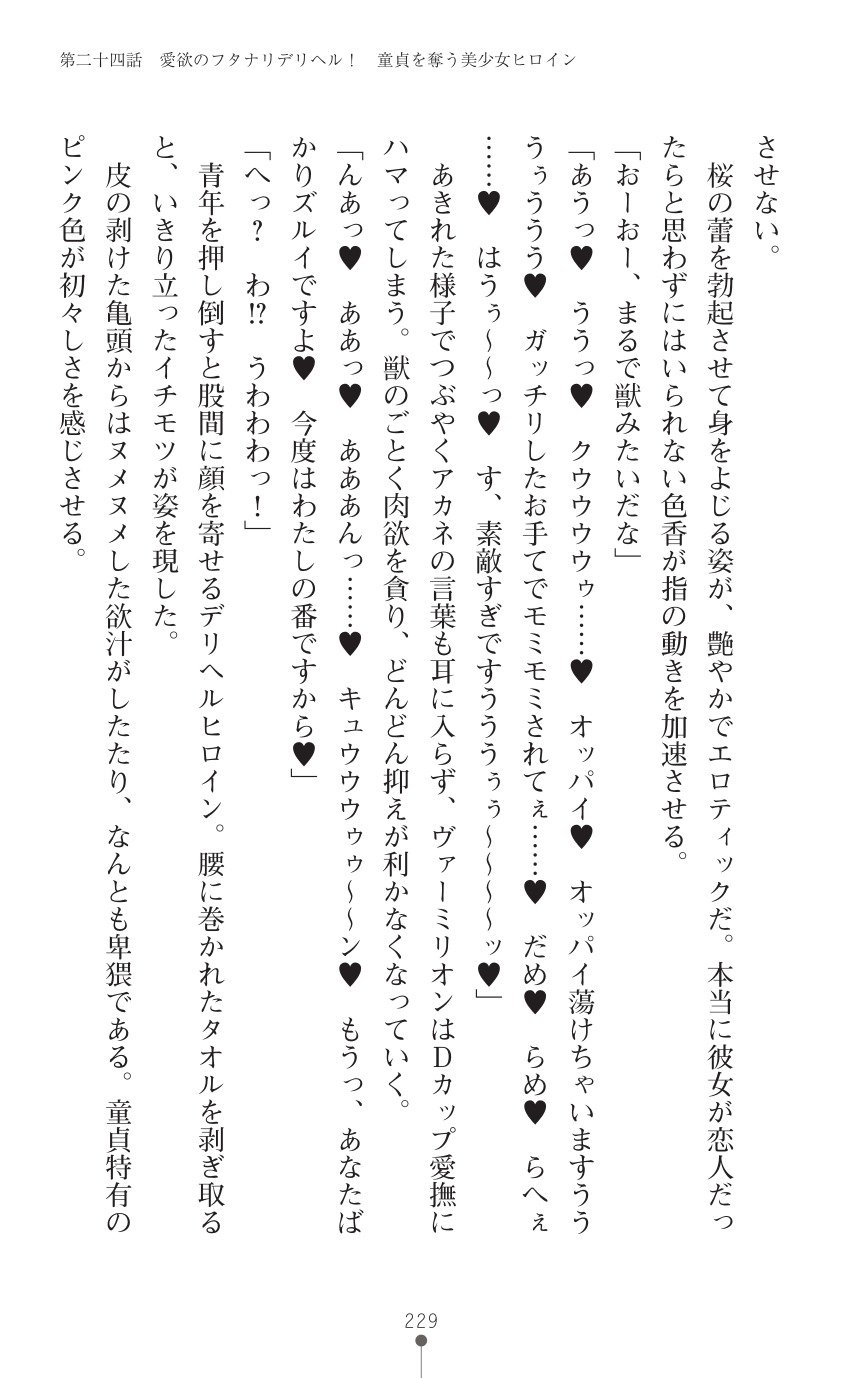 第二十四話　愛欲のフタナリデリヘル！　童貞を奪う美少女ヒロイン
させない。
　桜の蕾を勃起させて身をよじる姿が、艶やかでエロティックだ。本当に彼女が恋人だっ
たらと思わずにはいられない色香が指の動きを加速させる。
「おーおー、まるで獣みたいだな」
「あうっ♥　ううっ♥　クウウウウゥ……♥　オッパイ♥　オッパイ蕩けちゃいますうう
うぅううう♥　ガッチリしたお手てでモミモミされてぇ……♥　だめ♥　らめ♥　らへぇ
……♥　はうぅ～～っ♥　す、素敵すぎですうううぅぅ～～～～ッ♥」
　あきれた様子でつぶやくアカネの言葉も耳に入らず、ヴァーミリオンはＤカップ愛撫に
ハマってしまう。獣のごとく肉欲を貪り、どんどん抑えが利かなくなっていく。
「んあっ♥　ああっ♥　あああんっ……♥　キュウウウゥゥ～～ン♥　もうっ、あなたば
かりズルイですよ♥　今度はわたしの番ですから♥」
「へっ？　わ!?　うわわわっ！」
　青年を押し倒すと股間に顔を寄せるデリヘルヒロイン。腰に巻かれたタオルを剥ぎ取る
と、いきり立ったイチモツが姿を現した。
　皮の剥けた亀頭からはヌメヌメした欲汁がしたたり、なんとも卑猥である。童貞特有の
ピンク色が初々しさを感じさせる。
229